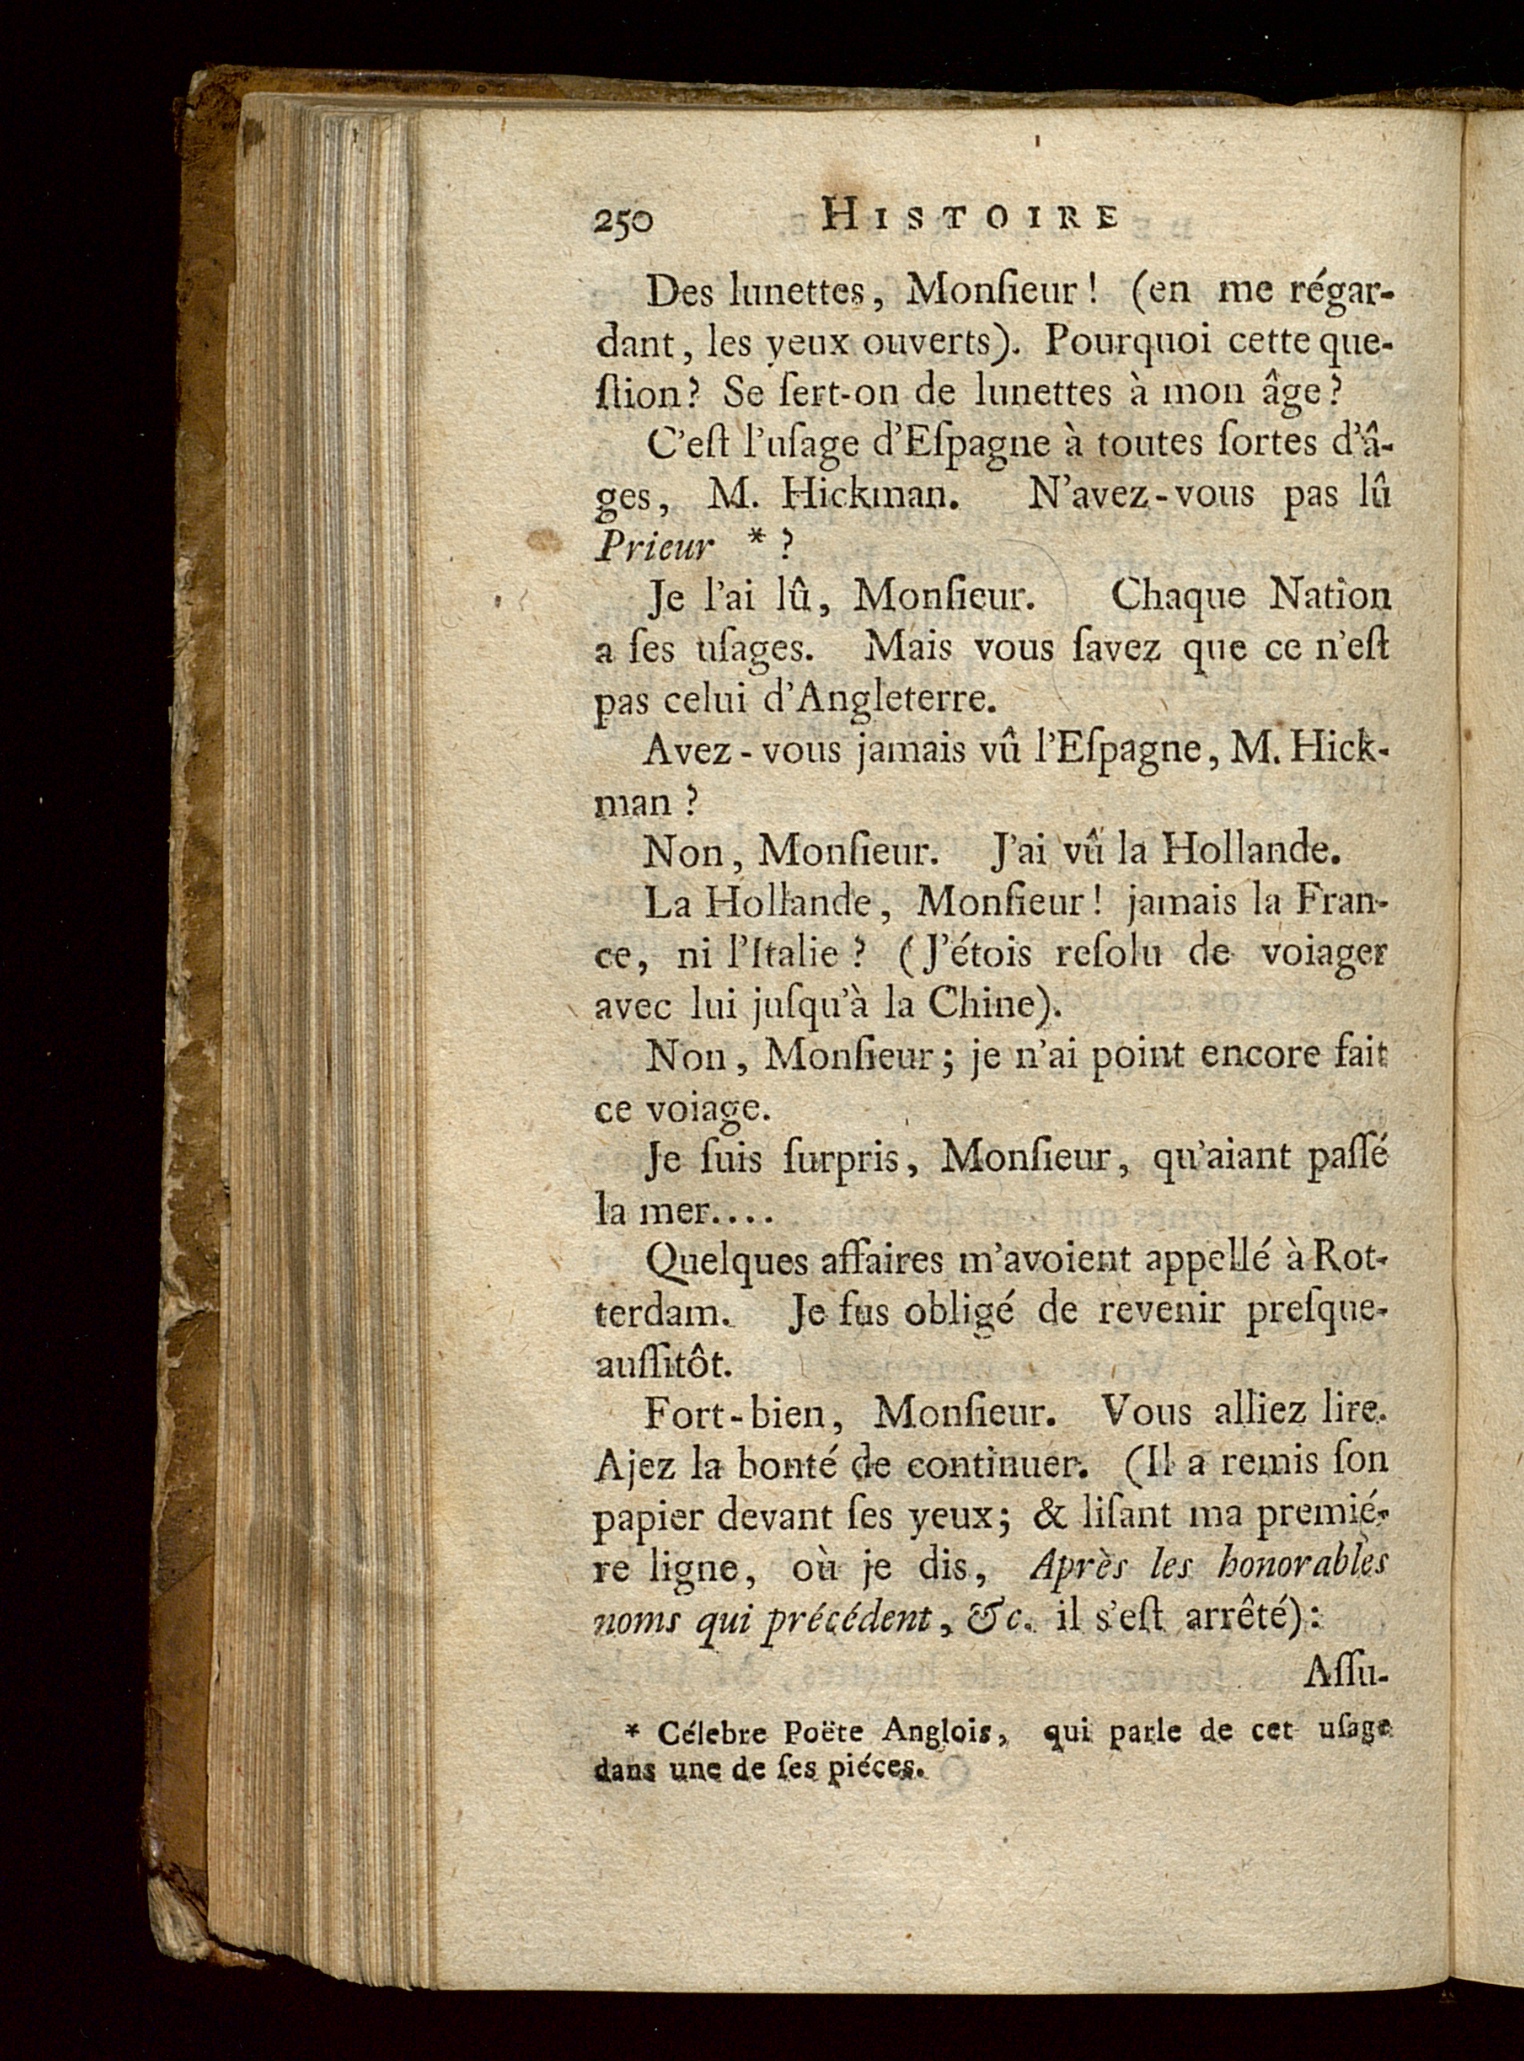 250 HISTOIRE
Des lunettes, Monſieur! (en me régar-
dant, les yeux ouverts). Pourquoi cette que-
ſtion? Se ſert-on de lunettes à mon âge?
C'eſt l'uſage d'Eſpagne à toutes ſortes d'â-
ges, M. Hickman. N'avez-vous pas lû
Prieur * ?
Je l'ai lû, Monſieur. Chaque Nation
a ſes uſages. Mais vous ſavez que ce n'eſt
pas celui d'Angleterre.
Avez-vous jamais vû l'Eſpagne, M. Hick-
man?
Non, Monſieur. J'ai vû la Hollande.
La Hollande, Monſieur! jamais la Fran-
ce, ni l'Italie? (J'étois reſolu de voiager
avec lui juſqu'à la Chine).
Non, Monſieur; je n'ai point encore fait
ce voiage.
Je ſuis ſurpris, Monſieur, qu'aiant paſſé
la mer....
Quelques affaires m'avoient appellé à Rot-
terdam. Je fus obligé de revenir preſque-
auſſitôt.
Fort-bien, Monſieur. Vous alliez lire.
Ajez la bonté de continuer. (Il a remis ſon
papier devant ſes yeux; & liſant ma premié-
re ligne, où je dis, Après les honorables
noms qui précédent, &c. il s'eſt arrêté):
Aſſu-
* Célebre Poëte Anglois, qui parle de cet uſage
dans une de ſes piéces.